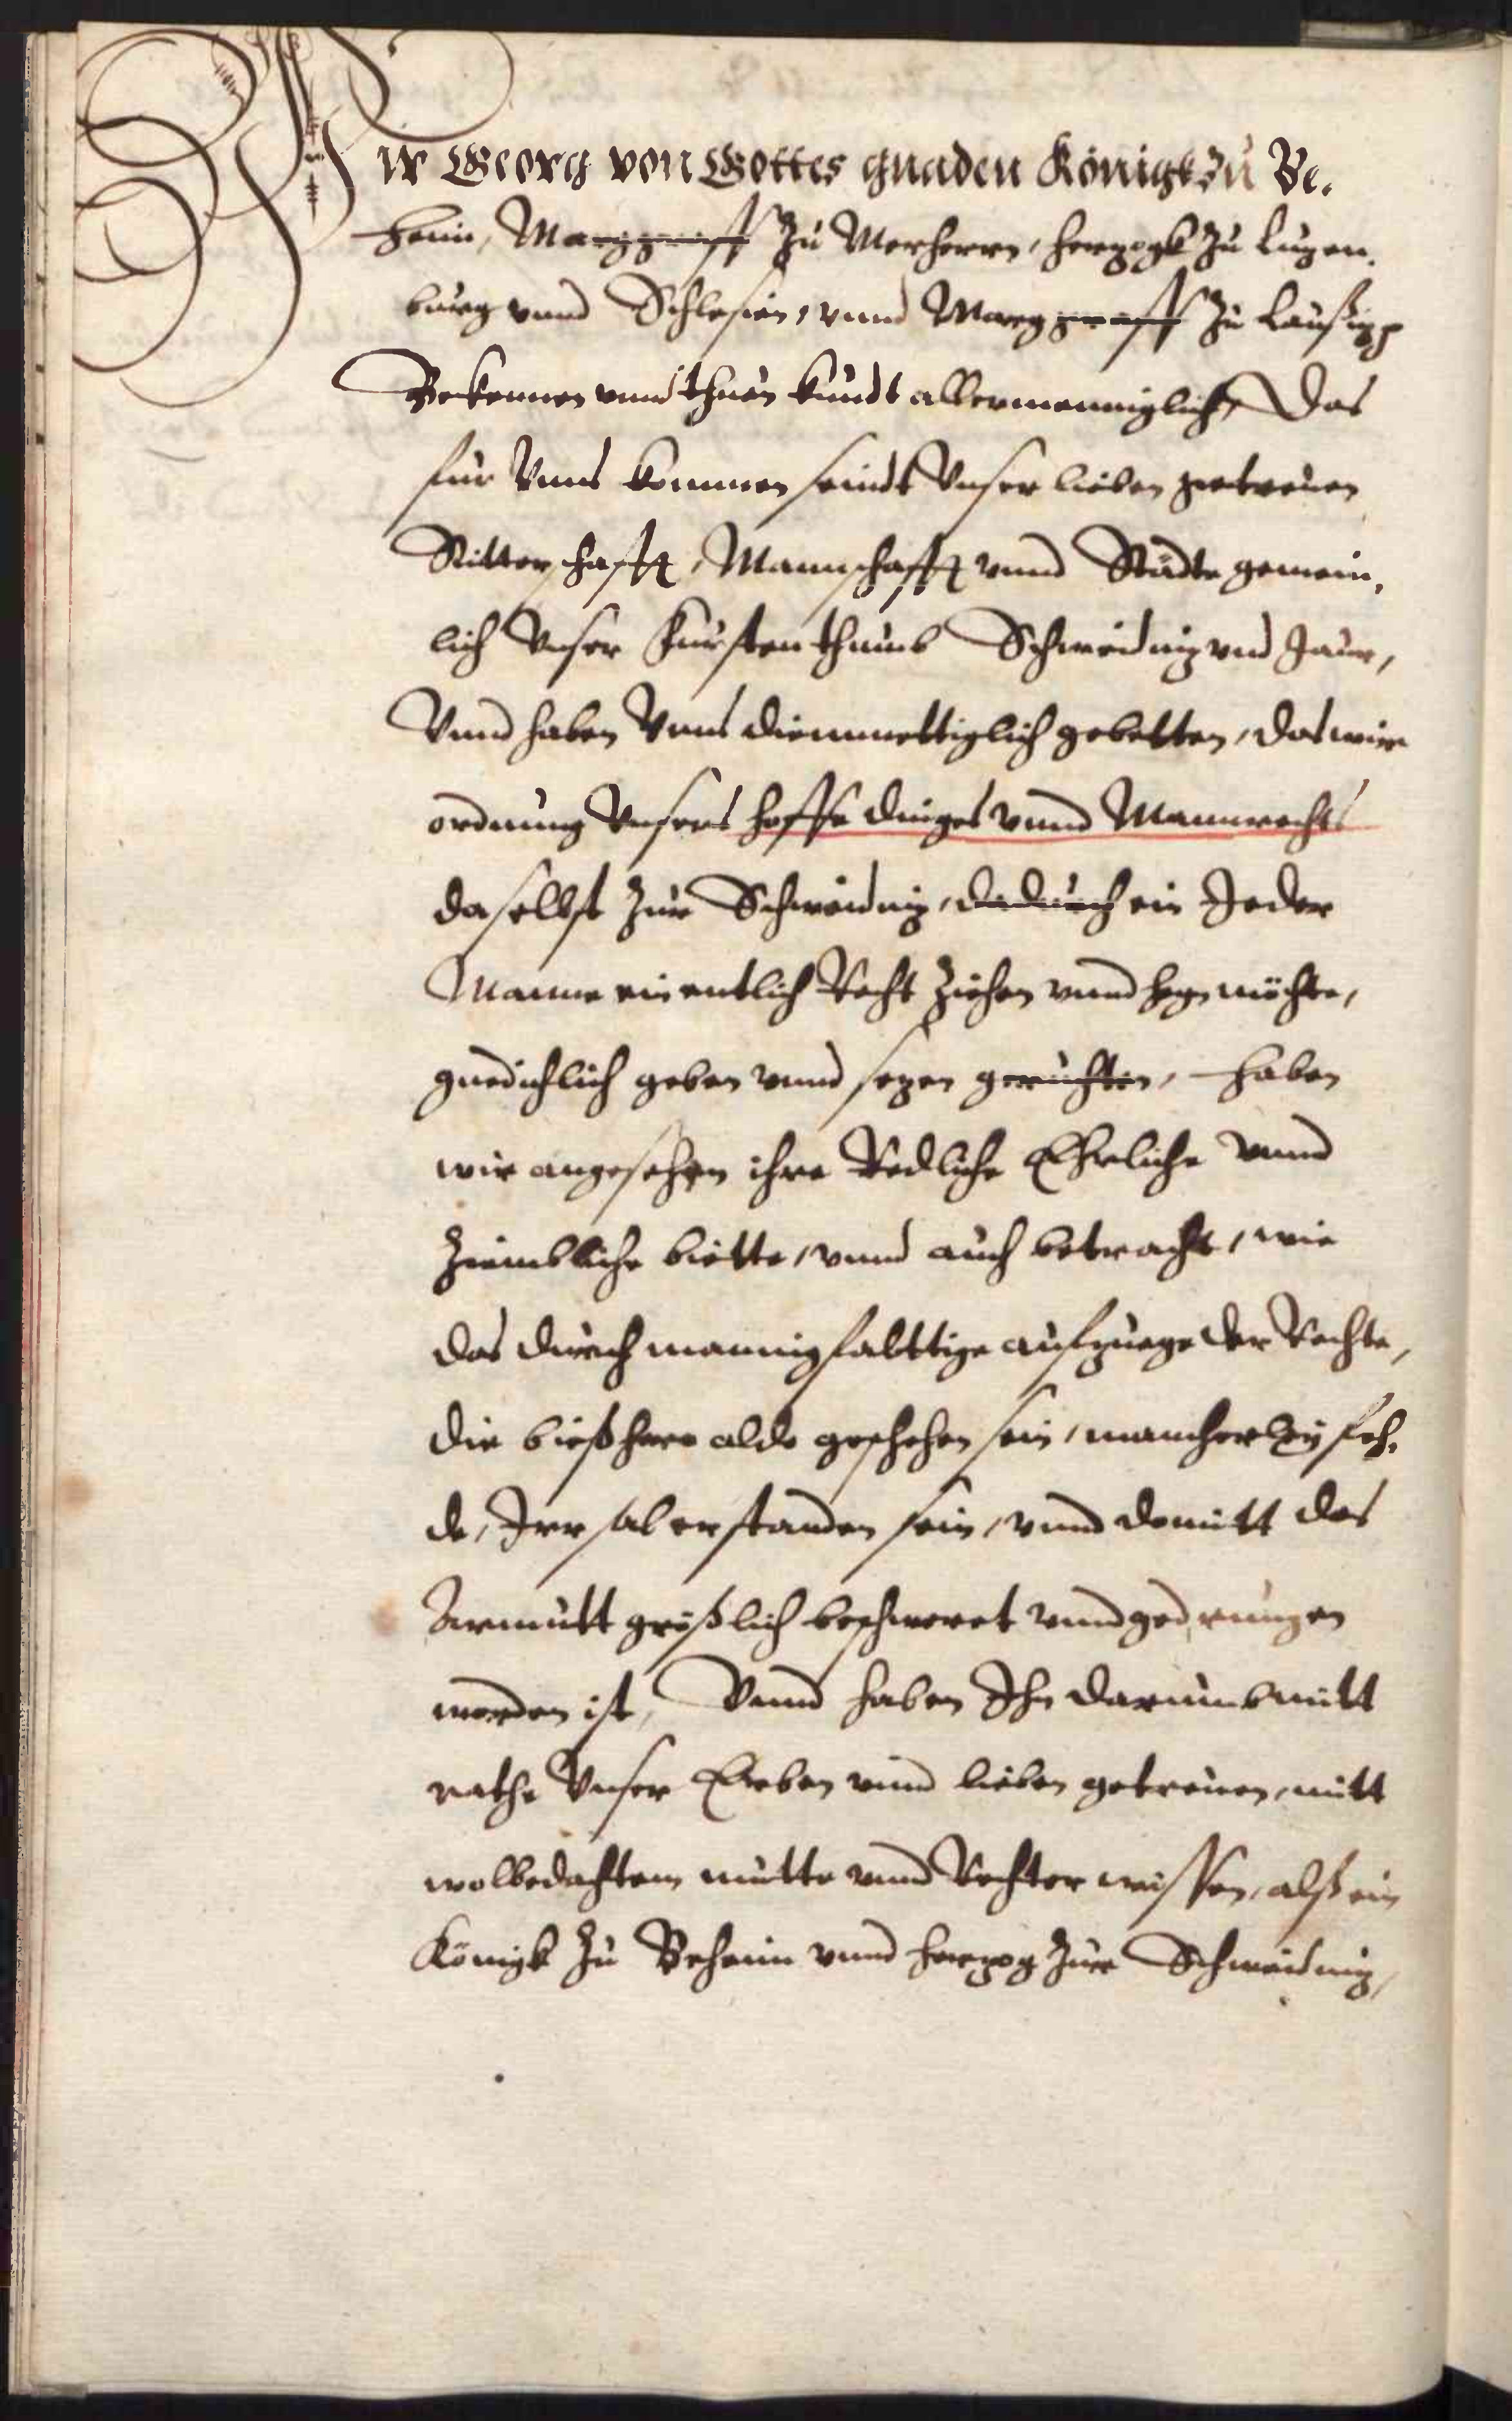 Wir Georg von Gottes gnaden Königk zu Be-
heim, Marggraff zu Merherrn, herzogk zu Luzen-
burg vnnd Schlesien, vnnd Marggraff zu Laußizz
Bekennen vnnd thuen kundt allermenniglich, Das
für Vnns kommen seindt Vnser lieben getreuen
Ritterschafft, Mannschafft vnnd Städte gemein-
lich Vnser Fürstenthumb Schweidniz vnd Jaur,
Vnnd haben Vnns diemuettiglich gebetten, das wier
ordnung Vnsers hoffedinges vnnd Mannrechts
daselbst zur Schweidniz, dadurch ein Jeder
Manne ein entlich Recht ziehen vnnd hegen möchte,
gnedichlich geben vnnd sezen geruchten, haben
wir angesehen ihre Redliche Ehrliche vnnd
ziembliche biette, vnnd auch betracht, wie
das durch mannigfalttige aufzuege der Rechte,
die bießhero aldo geschehen sein, mancherley feh-
de, Irrsal erstanden sein, vnnd domitt das
Armutt größlich beschweret vnnd gedrungen
worden ist, Vnnd haben Ihn darumb mitt
rathe Vnser Erben vnnd lieben getreuen, mitt
wolbedachtem mutte vnnd Rechter wissen, alß ein
Königk zu Beheim vnnd herzog zur Schweidniz,